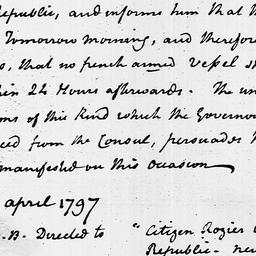 Republic, and informs him that th
Tomorrow morning, and therefore
, that no french armed Vessel s
in 24 Hours afterwards. The un
ons of this Kind which the Governor
ed from the Consul, persuades
manifested on this occasion
april 1797
.B. Directed to "Citizen Rozier
Republic - new